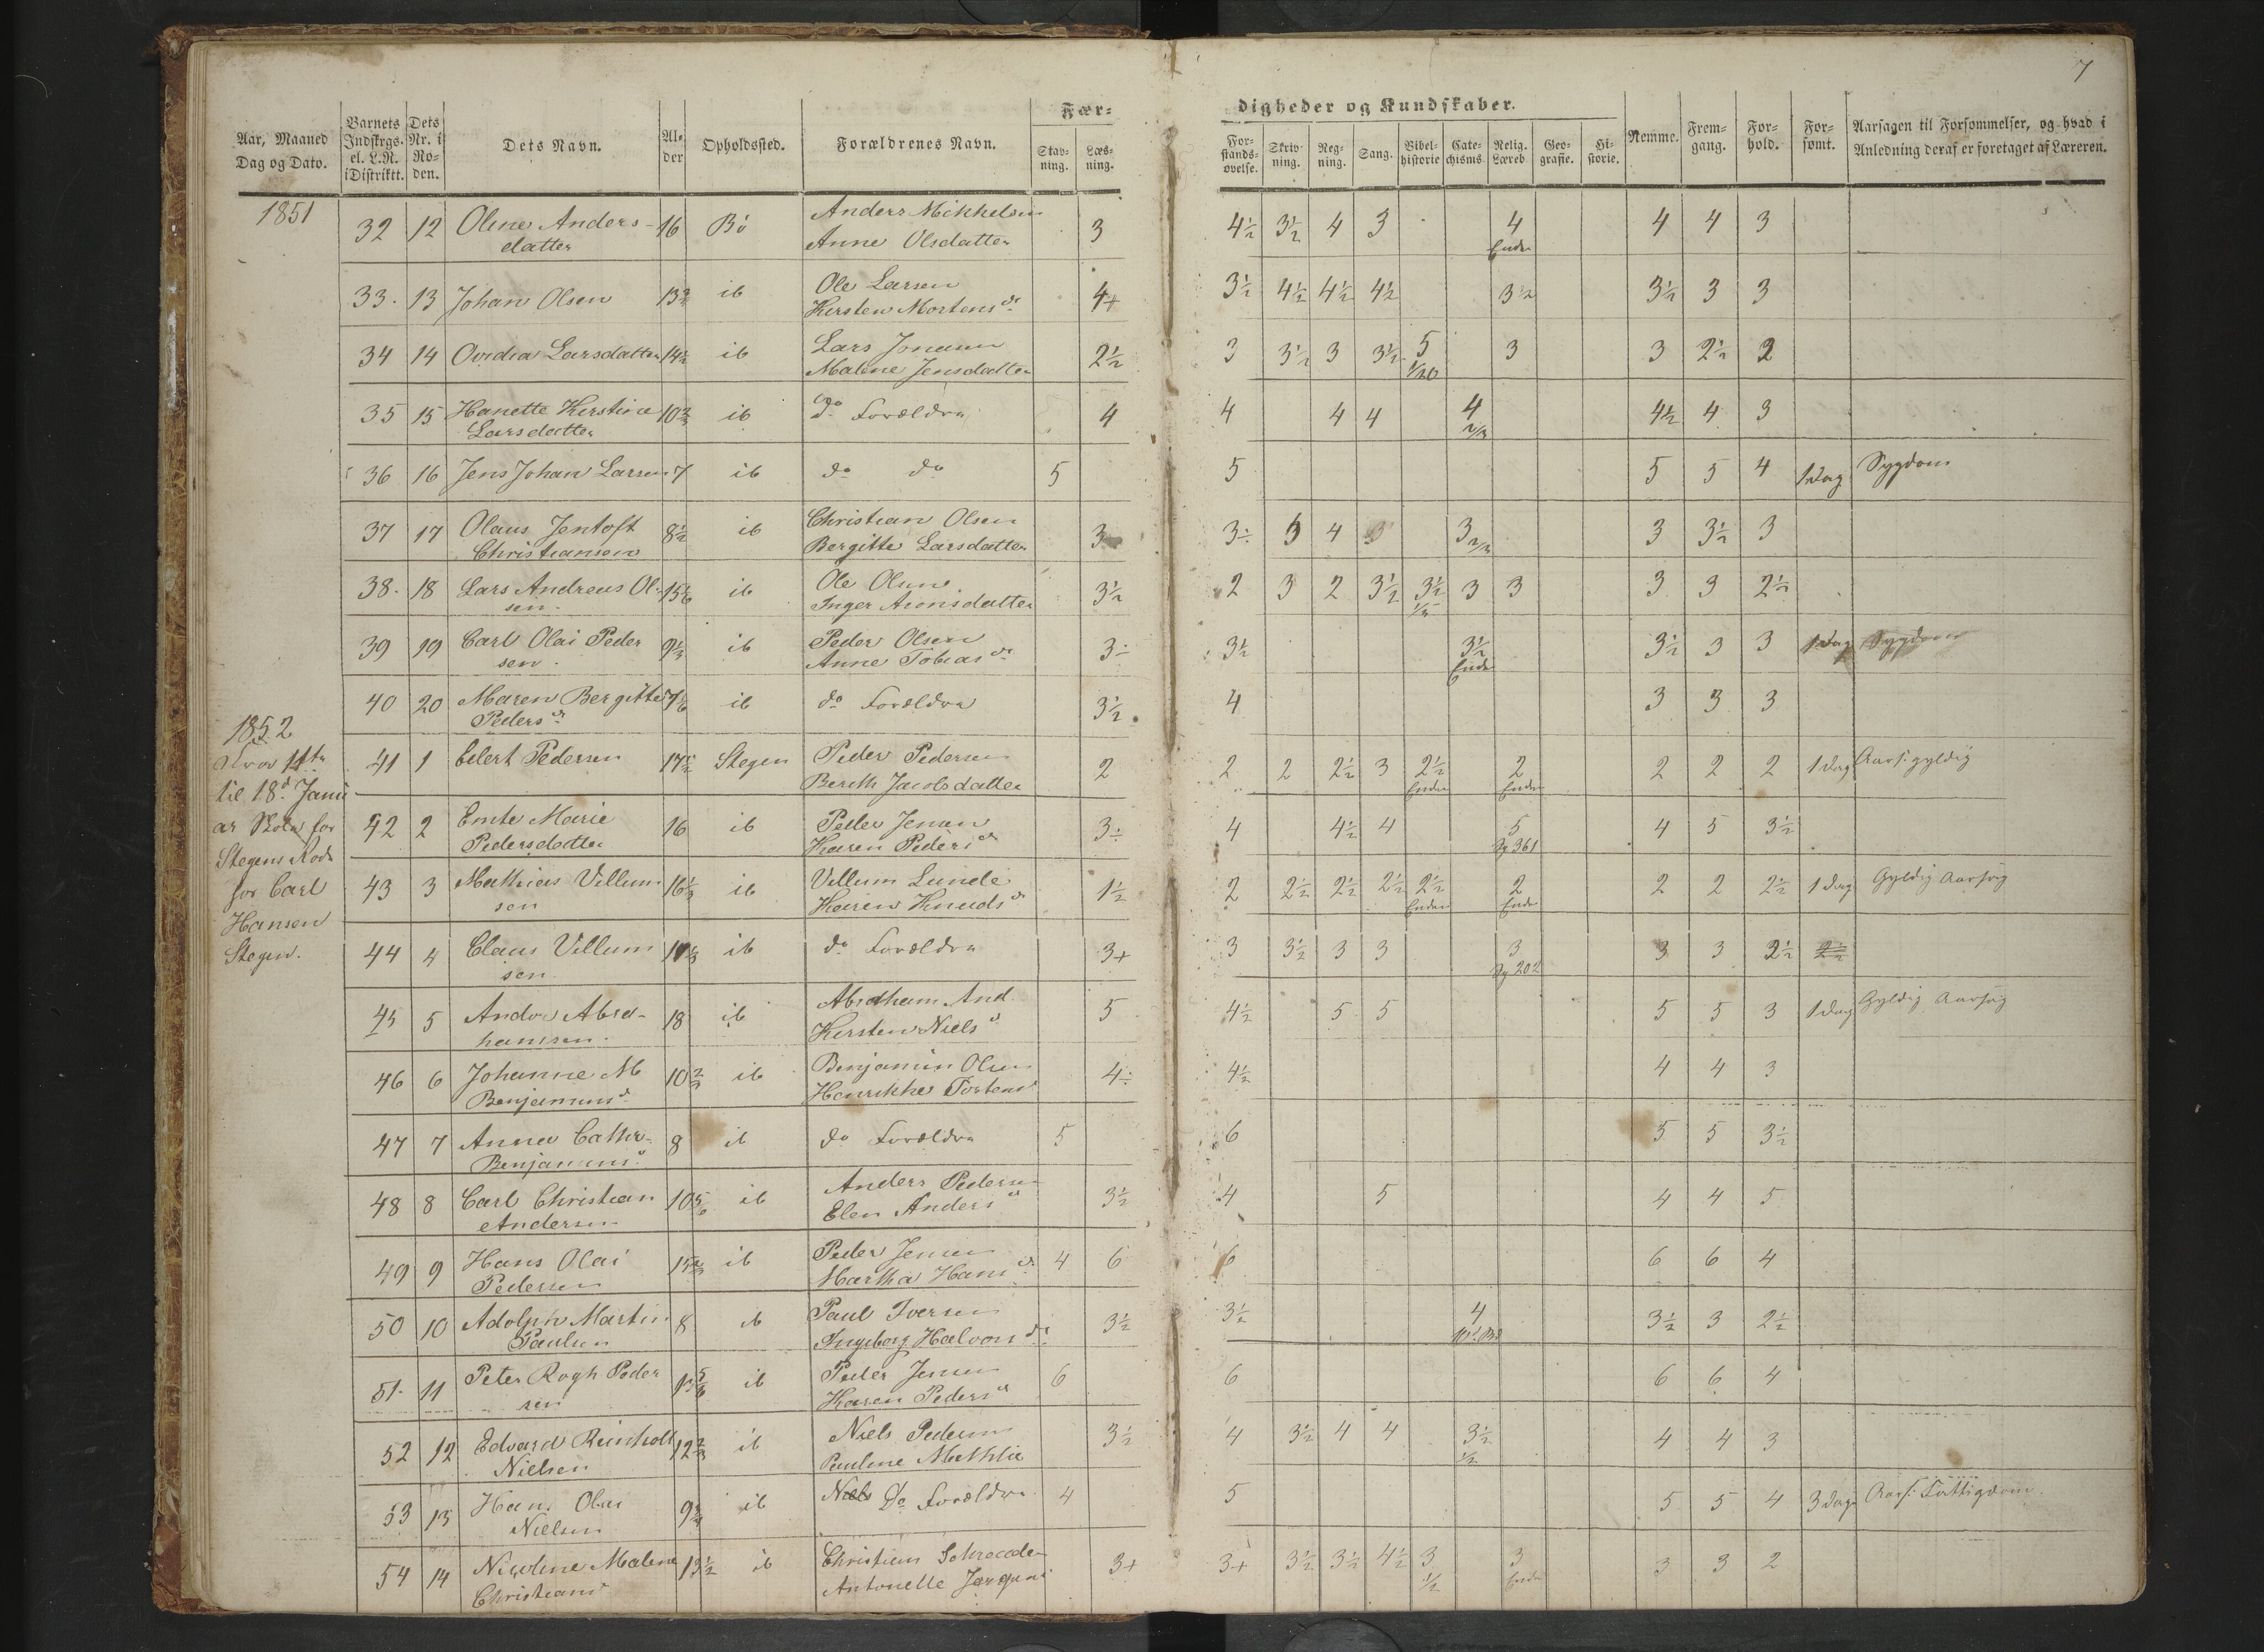 7
Fær-
digheder og Kundskaber.
Aar, Maaned Dag og Dato.
Barnets Indskrgs. el. L.N. i Distriktt.
Dets Nr. i Roden.
Dets Navn.
Alder
Opholdssted.
Forældrenes Navn.
Stavning.
Læsning.
Forstandsøvelse.
Skrivning.
Regning.
Sang.
Bibelhistorie
Catechisms.
Relig. Læreb
Geografie.
Historie.
Nemme.
Fremgang.
Forhold.
Forsømt.
Aarsagen til Forsømmelser, og hvad i
Anledning deraf er foretaget af Læreren.
1851
32 12 Oline Anders- 16 Bö Anders Mikkelsen 3 4½ 3½ 4 3 4 4 4 3
datter Anne Olsdatter Enden
33. 13 Johan Olsen ib Ole Larsen 4+ 3½ 4½ 4½ 4½ 3½ 3½ 3 3
Kersten Mortens dr
34 14 Ovidia Larsdatter 14½ ib Lars Jensen 2½ 3 3½ 3 3½ 5 3 3 2½ 2
Malene Jensdatter 1/20
35 15 Hanette Kerstine 10 ib do Forældre 4 4 4 4 4 4½ 4 3
Larsdatter 2/3
36 16 Jens Johan Larsen 7 ib do do 5 5 5 5 4 1 Dag Sygdom
37 17 Olaus Jentoft 8½ ib Christian Olsen 3 3÷ 5 4 3 3 3½ 3
Christiansen Bergitte Larsdatter 2/3
38. 18 Lars Andreas Ol- 15 ib Ole Olsen 3½ 2 3 2 3½ 3½ 3 3 3 3 2½
sen. Inger Aronsdatter
39 19 Carl Olai Peder 9⅓ ib Peder Olsen 3÷ 3½ 3½ 3½ 3 3 1 Dag Sygdom
sen. Anne Tobias dr Enden
40 20 Maren Bergitte ib do Forældre 3½ 4 3 3 3
Peders dr
1852
Fra 11te
til 18d Janu
ar Skole for
Stegens Rode
for Carl
Hansen
Stegen.
41 1 Eilert Pedersen 17½ Stegen Peder Pedersen 2 2 2 2½ 3 2½ 2 2 2 2 1 Dag Aars: gyldig
Berith Jacobsdatter Enden Enden
42 2 Emte Marie 16 ib Peder Jensen 3÷ 4 4½ 4 5 4 5 3½
Pedersdatter Karen Peders dr Sp 361
43 3 Mathias Villum 16⅓ ib Villum Lunde 1½ 2 2½ 2½ 2½ 2½ 2 2 2 2½ 1 Dag Gyldig Aarsag
sen Karen Knuds dr Enden Enden
44 4 Claus Villum ib do Forældre 3+ 3 3½ 3 3 3 3 3 2½ 2½
sen. Sp 202
45 5 Andor Abra- 18 ib Abraham And. 5 4½ 5 5 5 5 3 1 Dag Gyldig Aarsag
hamsen. Kersten Niels d
46 6 Johanne M 10⅔ ib Benjamin Olsen 4÷ 4½ 4 4 3
Benjamins d Henrikke Tostens
47 7 Anna Cathr. 8 ib do Forældre 5 6 5 5 3½
Benjamins d
48 8 Carl Christian 10⅚ ib Anders Pedersen 3½ 4 5 4 4 5
Andersen Elen Anders d
49 9 Hans Olai 15⅔ ib Peder Jensen 4 6 6 6 6 4
Pedersen Martha Hans dr
50 10 Adolph Martin 8 ib Paul Iversen 3½ 3½ 4 3½ 3 2½
Paulsen Ingeborg Halvors dr
51. 11 Peter Rogh Peder ib Peder Jensen 6 6 6 6 4
sen Karen Peders d
52 12 Edvard Reinholt 12⅔ ib Niels Pedersen 3½ 4 3½ 4 4 3½ 4 4 3
Nielsen Pauline Mathie 1/2
53 13 Hans Olai 9 ib Niels Do Forældre 4 5 5 5 4 3 Dage Aars: Fattigdom.
Nielsen
54 14 Nicoline Malene 13½ ib Christian Schrœder 3+ 3+ 3½ 3½ 4½ 3 3 3 3 2
Christians d Antonette 1/2 Enden